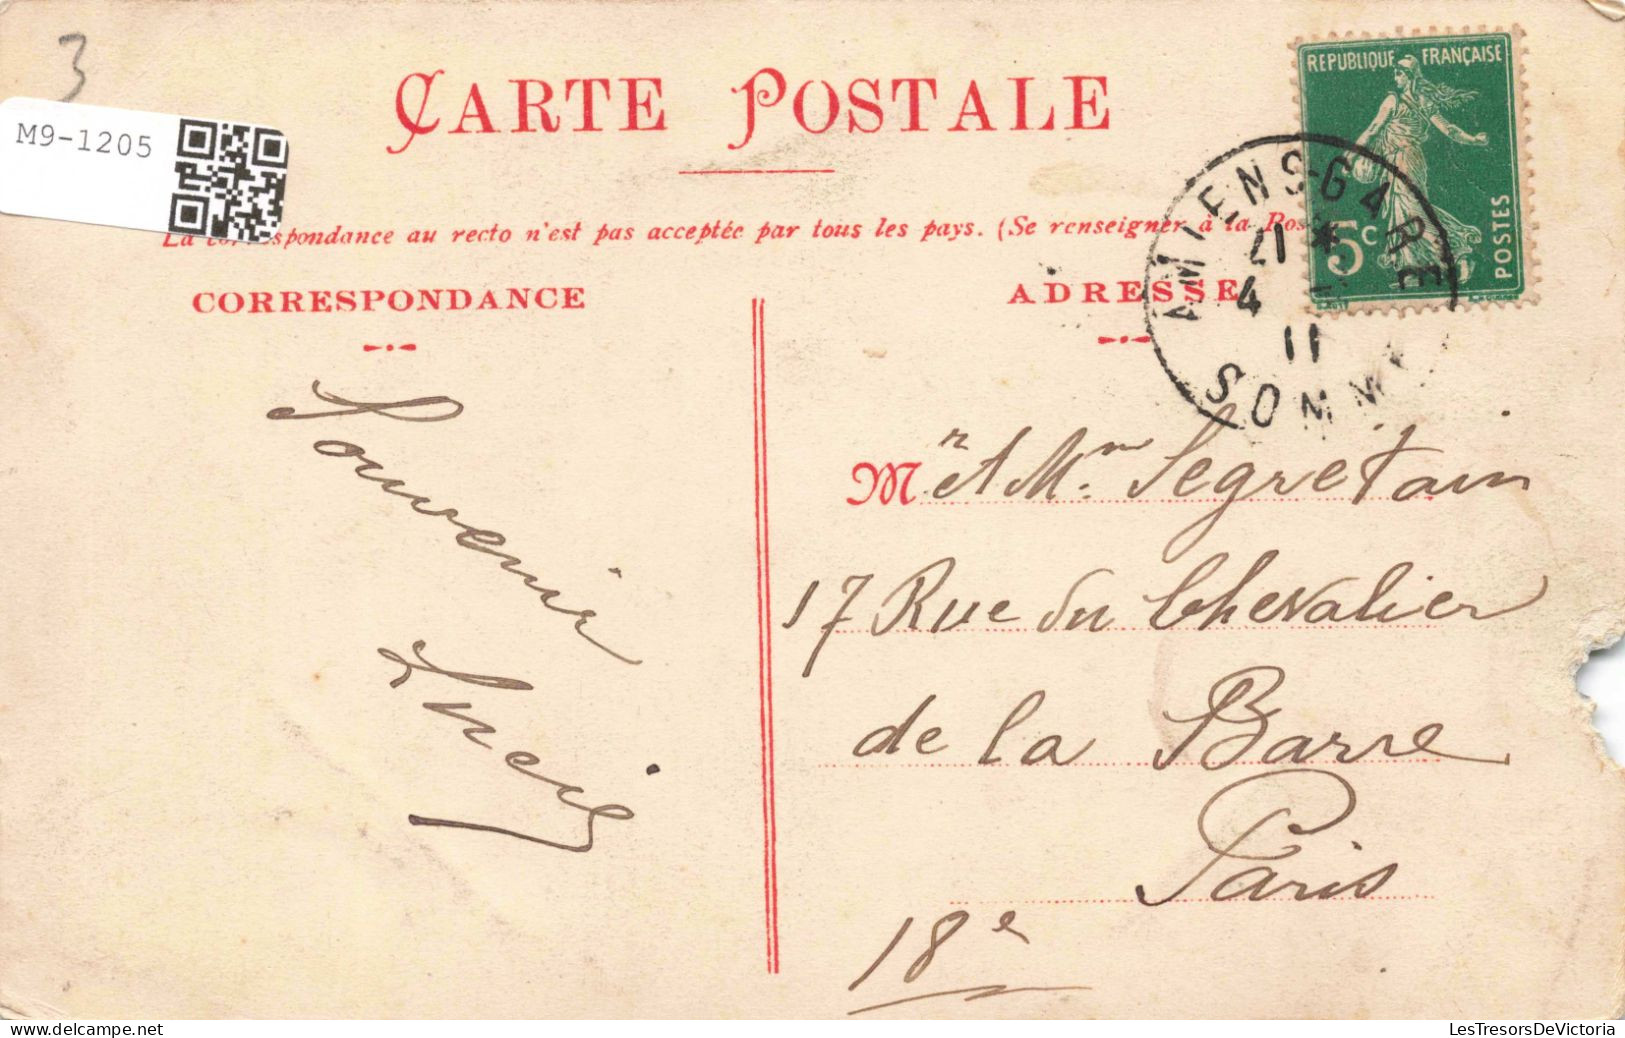 3
M9-1205
CARTE POSTALE
REPUBLIQUE FRANÇAISE
5c
POSTES
La correspondance au recto n'est pas acceptée par tous les pays. (Se renseigner à la Pos
AMIENS-GARE
17 *
4
11
SOMME
CORRESPONDANCE
ADRESSE
Souvenir
Lucie
Mr et Mm. Segretain
17 Rue du Chevalier
de la Barre
Paris
18e
LesTresorsDeVictoria